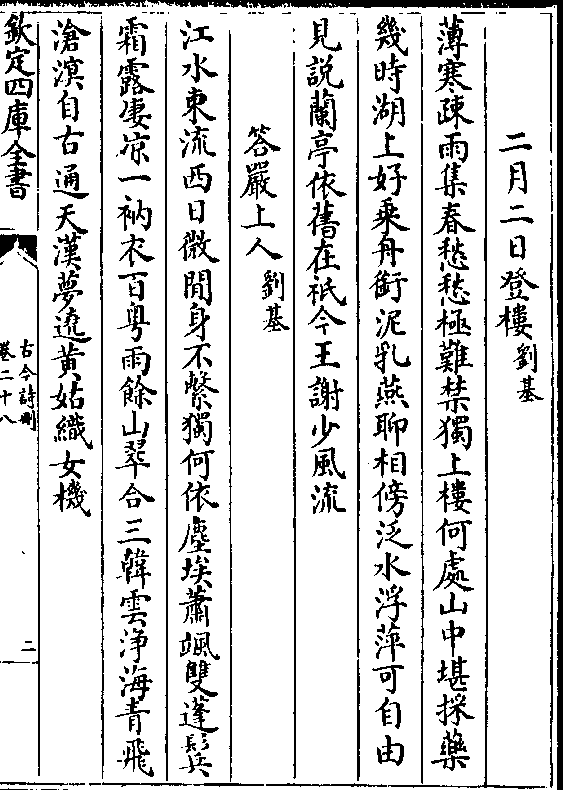 二月二日登樓 劉基
薄寒疎雨集春愁愁極難禁獨上樓何處山中堪採藥
幾時湖上好乘舟銜泥乳燕聊相傍泛水浮萍可自由
見説蘭亭依舊在祇今王謝少風流
答嚴上人 劉基
江水東流西日微閒身不繫獨何依塵埃蕭颯雙蓬鬂
霜露凄凉一衲衣百粤雨餘山翠合三韓雲浄海青飛
滄溟自古通天漢夢遶黄姑織女機
欽定四庫全書
古今詩刪
卷二十八
二